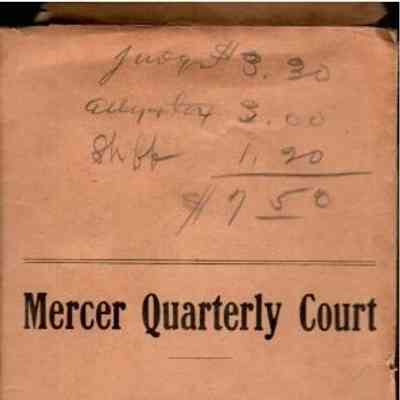 Judge $ 3.30
Atty tax 3.00
Shff 1.20
$ 7 50
Mercer Quarterly Court